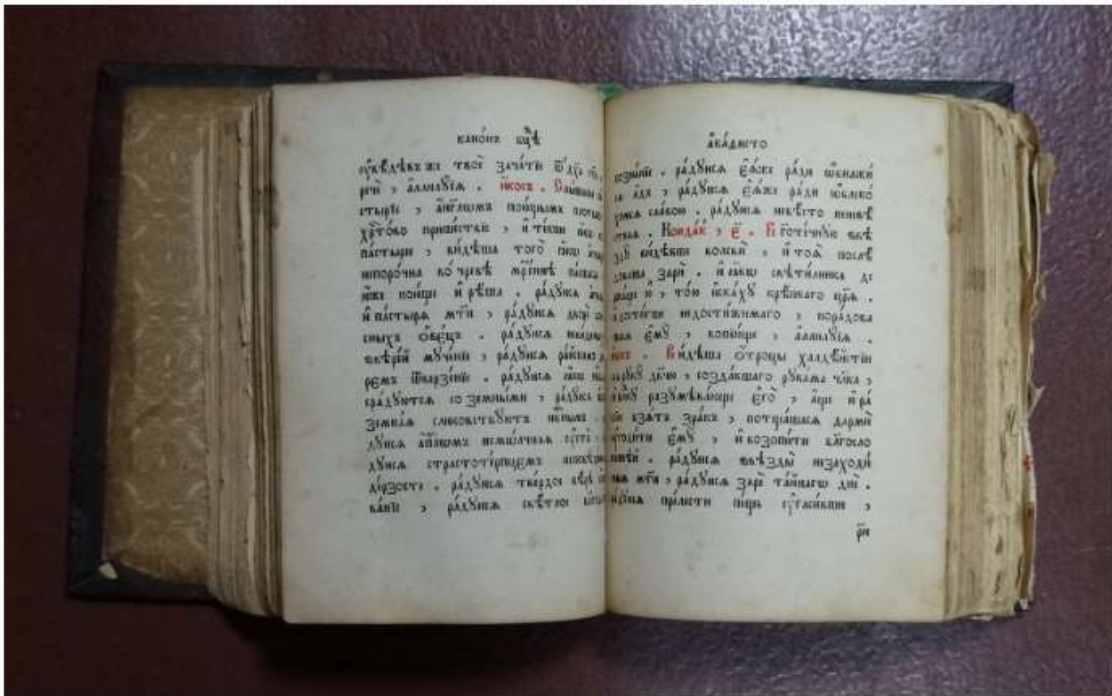 канѡ́нъ бцⷣѣ
твоѐ зача́тїе ѿ дх҃а
рїи , а҆ллилꙋ́їа . і҆́косъ . Слы́шаша
стырїе , а҆́гг҃лѡмъ пою́щымъ
хрⷭ҇то́во прише́ствїе , и҆ те́кше
па́стырю , ви́дѣша того̀ ꙗ҆́кѡ
непоро́чна во чре́вѣ мр҃і́инѣ
ю҆́же пою́ще и҆ рѣ́ша . ра́дꙋйсѧ
и҆ па́стырѧ мт҃и , ра́дꙋйсѧ дво́ре
сныхъ ѻ҆ве́цъ . ра́дꙋйсѧ
ѕвѣре́й мꙋче́нїе , ра́дꙋйсѧ ра́йскимъ
ре́мъ ѿверзе́нїе . ра́дꙋйсѧ ꙗ҆́кѡ
сра́дꙋютсѧ со земны́ми , ра́дꙋйсѧ
земна́ѧ сликовствꙋ́ютъ
дꙋйсѧ а҆пⷭ҇лѡмъ немо́лчнаѧ
дꙋйсѧ страстоте́рпцемъ
де́рзосте . ра́дꙋйсѧ тве́рдое вѣ́рѣ
ва́нїе , ра́дꙋйсѧ свѣ́тлое
а҆ка́ѳисто
ра́дꙋйсѧ є҆ѧ́же ра́ди ѡ҆бнажи́
сѧ а҆́дъ , ра́дꙋйсѧ є҆ѧ́же ра́ди ѡ҆блеко́
хомсѧ сла́вою . ра́дꙋйсѧ невѣ́сто неневѣ́
стнаѧ . Конда́къ , є҃ . Бг҃оте́чнꙋю ѕвѣ
здꙋ̀ ви́дѣвше волсвѝ , и҆ тоѧ̀ послѣ́
доваша зарѝ . и҆ ꙗ҆́кѡ свѣти́лника де
ржа́ще ю҆̀ , то́ю и҆ска́хꙋ крѣ́пкаго цр҃ѧ̀ .
и҆ дости́гше недостижи́маго , пора́дова
шасѧ є҆мꙋ̀ , вопїю́ще , а҆ллилꙋ́їа .
і҆́косъ . Ви́дѣша ѻ҆́троцы халде́йстїи
на рꙋкꙋ̀ дв҃чю , созда́вшаго рꙋка́ма чл҃ка ,
влⷣкꙋ разꙋмѣва́юще є҆го̀ , а҆́ще и҆ ра́
бїй взѧ́тъ зра́къ , потща́шасѧ дармѝ
ᲂу҆годи́ти є҆мꙋ̀ , и҆ возопи́ти бл҃госло
ве́ннѣй . ра́дꙋйсѧ ѕвѣзды̀ незаходи́
мыѧ мт҃и , ра́дꙋйсѧ зарѐ та́йнагѡ днѐ .
ра́дꙋйсѧ пре́лести пе́щь ᲂу҆гаси́вши ,